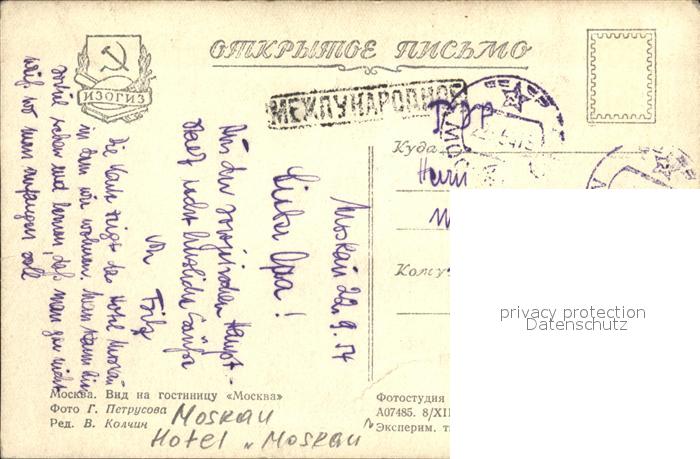 ОТКРЫТОЕ ПИСЬМО
ИЗОГИЗ
МЕЖДУНАРОДНОЕ
Куда
Кому
Moskau 22.9.54
Lieber Opa!
Aus der sowjetischen Haupt-
stadt recht herzliche Grüße
von Fritz
Die Karte zeigt das Hotel Moskau
in dem wir wohnen. Man kann hier
soviel sehen und lernen, daß man gar nicht
weiß wo man anfangen soll
Москва. Вид на гостиницу «Москва»
Фото Г. Петрусова
Ред. В. Колчин
Фотостудия
А07485. 8/XII
Эксперим. т
Moskau
Hotel „Moskau"
privacy protection
Datenschutz